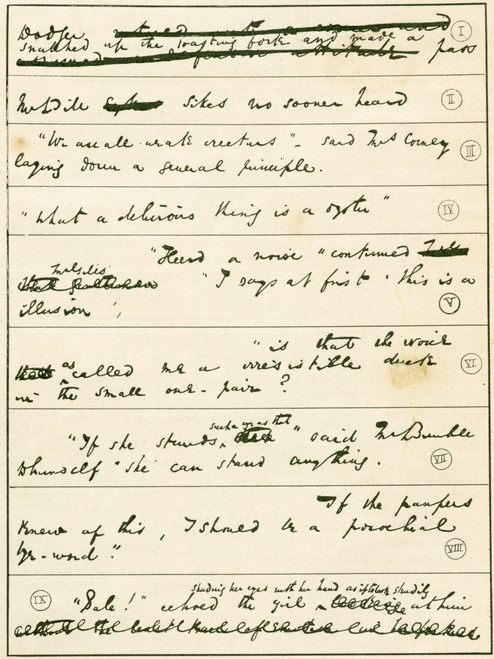 Dodger I
snatched up the toasting fork and made a
pass
Mr. Bill Sikes no sooner heard II
"We are all weak creeturs" – said Mrs Corney III
laying down a general principle.
"What a delicious thing is a oyster" IV
"Heerd a noise" continued
Mr Giles
"I says at first 'this is a
illusion', V
"is that the woice
as called me a irresistible duck VI
in the small one-pair?
such a eye as that
"If she stands " said Mr Bumble
to himself "she can stand anything. VII
If the paupers
knew of this, I should be a porochial
bye-word." VIII
shading her eyes with her hand as if to look steadily
IX "Pale!" echoed the girl at him